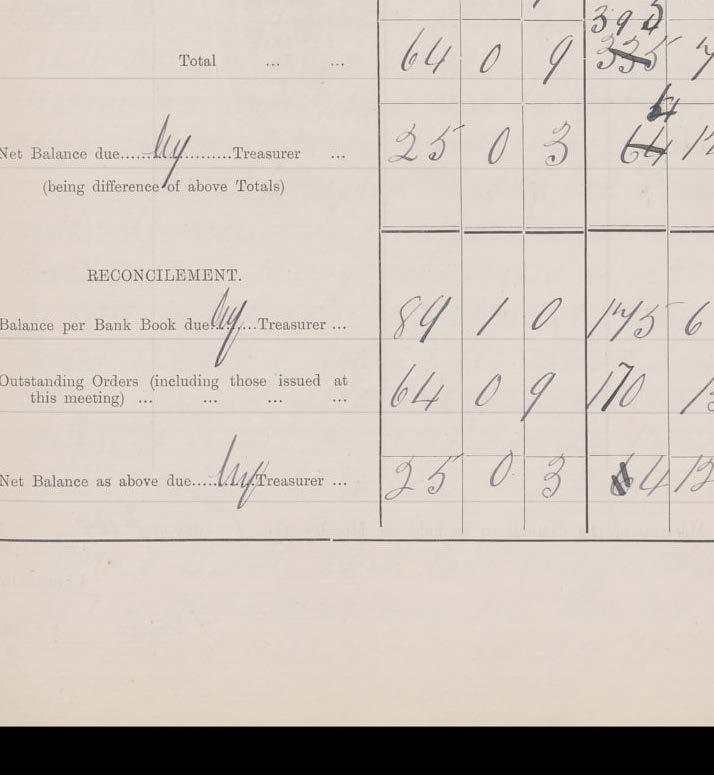 395
Total ... ... 64 0 9 335 7
54
Net Balance due......by..........Treasurer ... 25 0 3 64 12
(being difference of above Totals)
RECONCILEMENT.
Balance per Bank Book due..by....Treasurer ... 89 1 0 175 6
Outstanding Orders (including those issued at
this meeting) ... ... ... ... 64 0 9 170 13
Net Balance as above due.....by..Treasurer ... 25 0 3 4 12